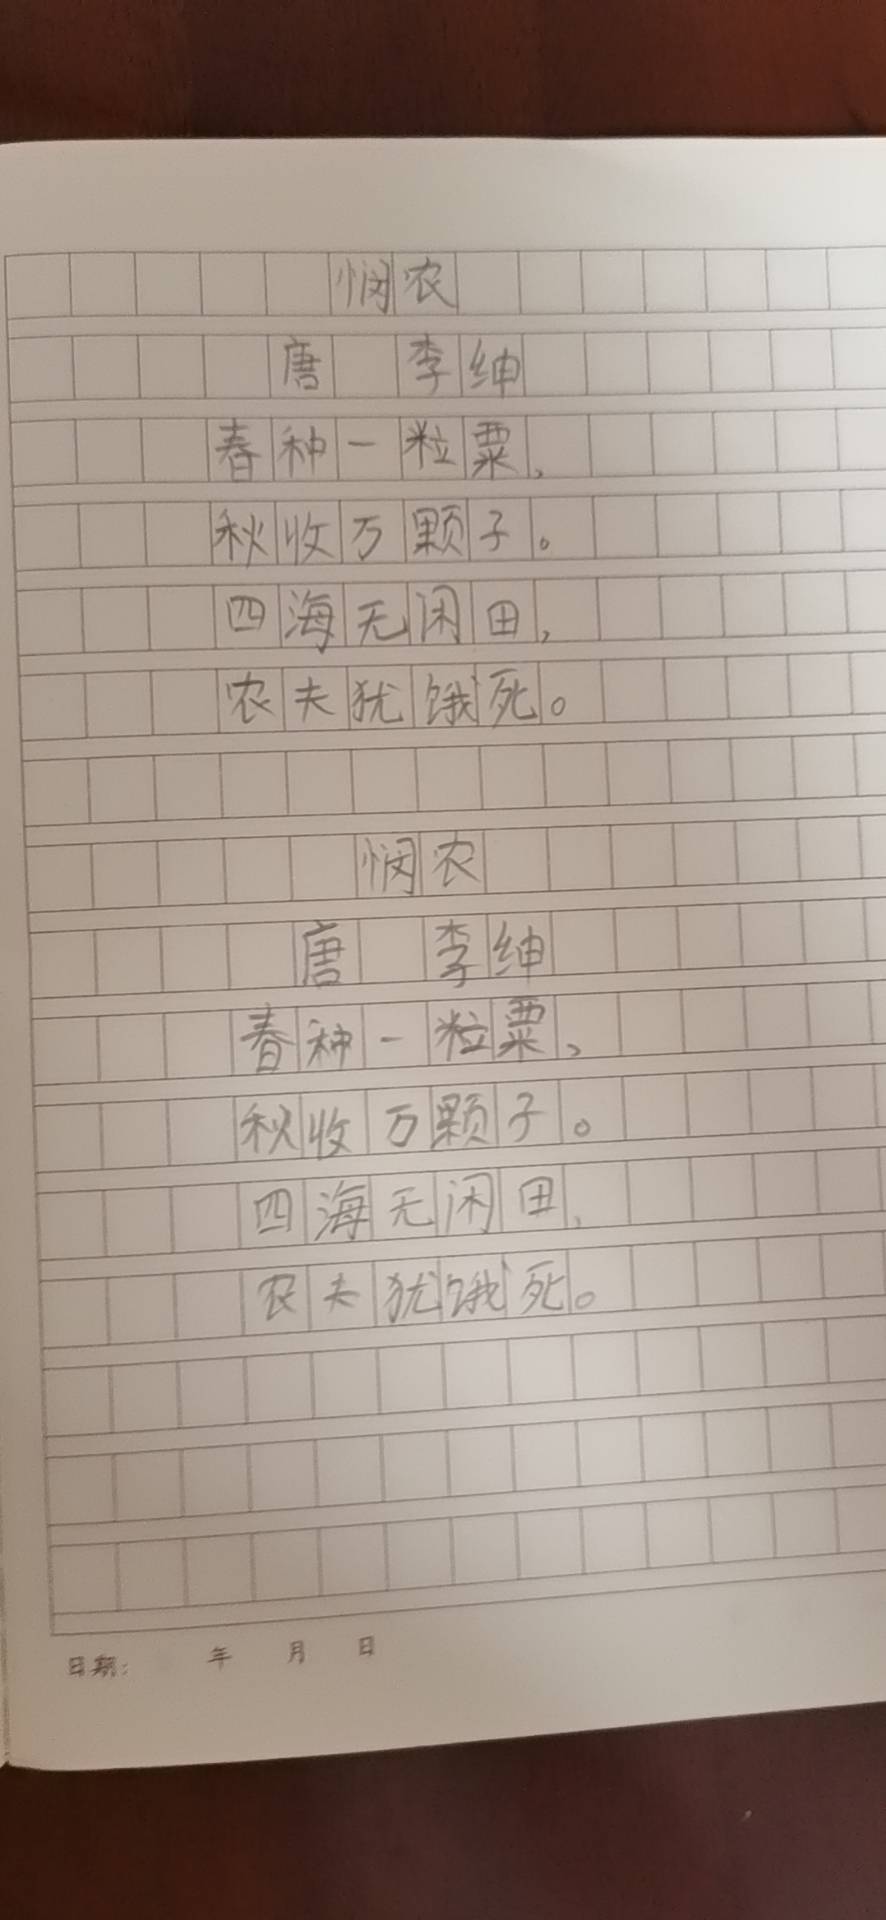 悯农
唐 李绅
春种一粒粟，
秋收万颗子。
四海无闲田，
农夫犹饿死。
悯农
唐 李绅
春种一粒粟，
秋收万颗子。
四海无闲田，
农夫犹饿死。
日期： 年 月 日